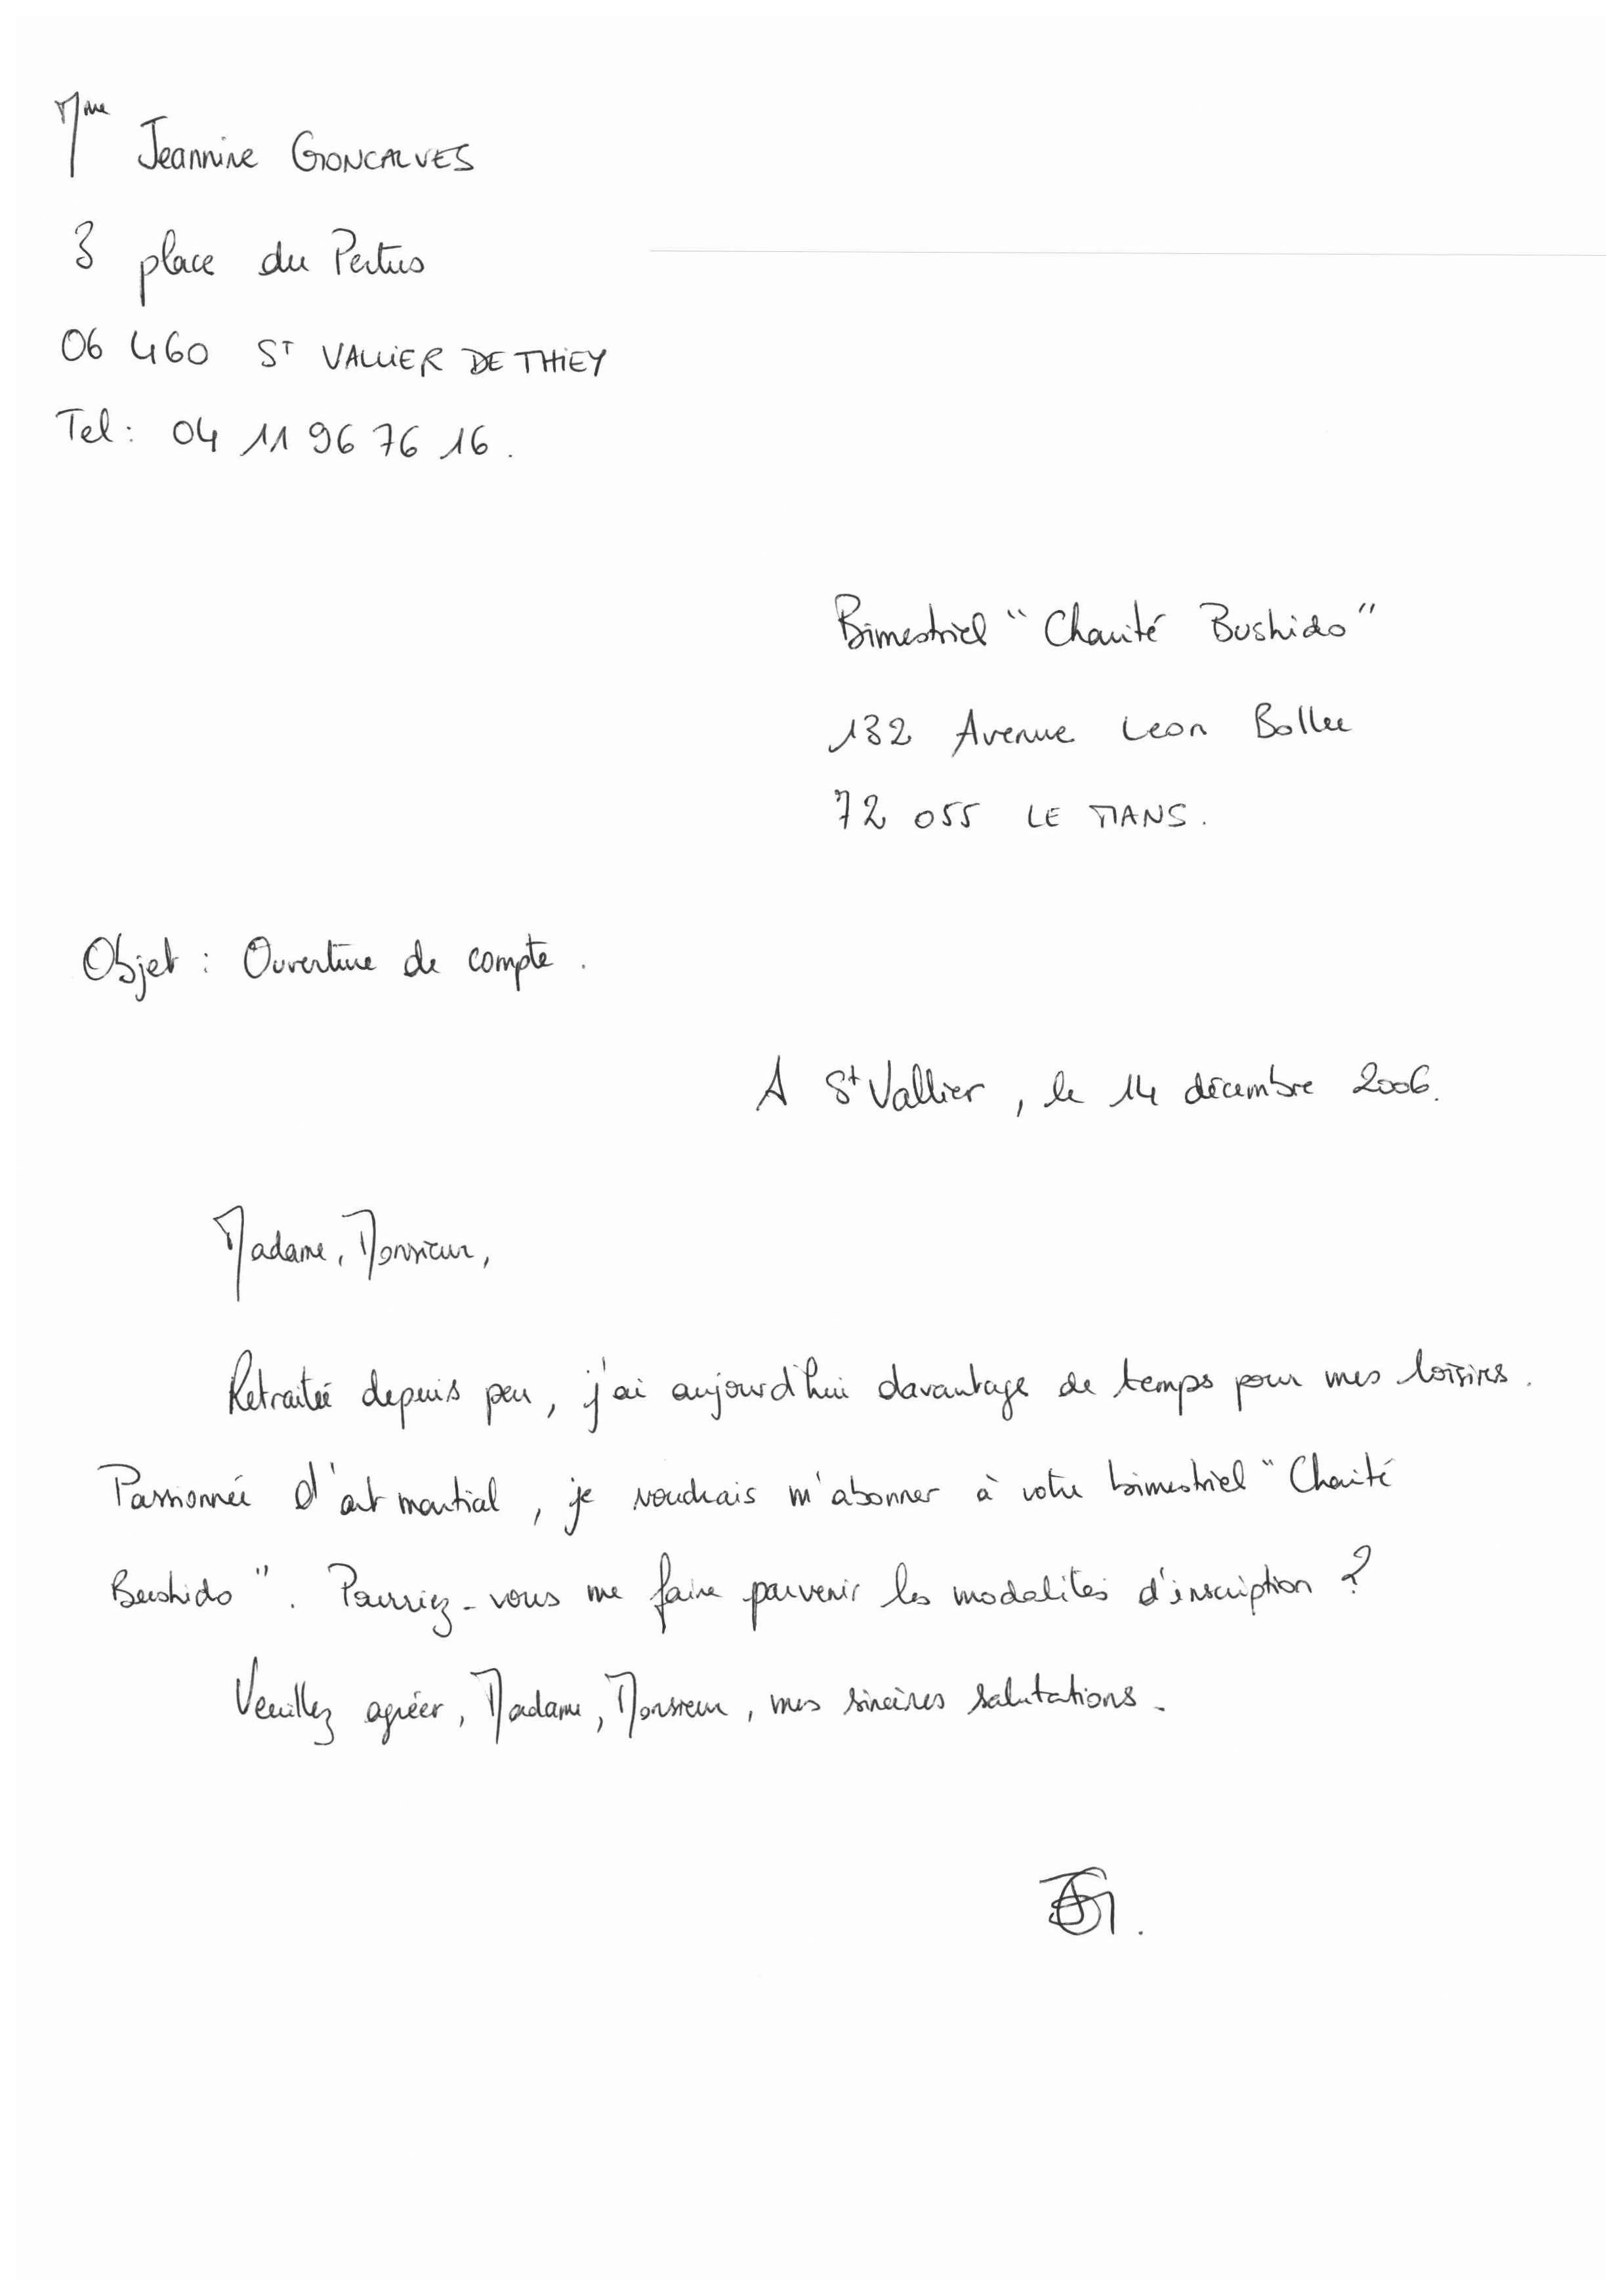 Mme Jeannine GONCALVES
3 place du Pertus
06 460 ST VALLIER DE THIEY
Tel : 04 11 96 76 16.
Bimestriel "Charité Bushido"
132 Avenue Leon Bollee
72 055 LE MANS.
Objet : Ouverture de compte.
A St Vallier, le 14 décembre 2006.
Madame, Monsieur,
Retraitée depuis peu, j'ai aujourd'hui davantage de temps pour mes loisirs.
Passionnée d'art martial, je voudrais m'abonner à votre bimestriel "Charité
Bushido". Pourriez-vous me faire parvenir les modalités d'inscription ?
Veuillez agréer, Madame, Monsieur, mes sincères salutations.
JG.